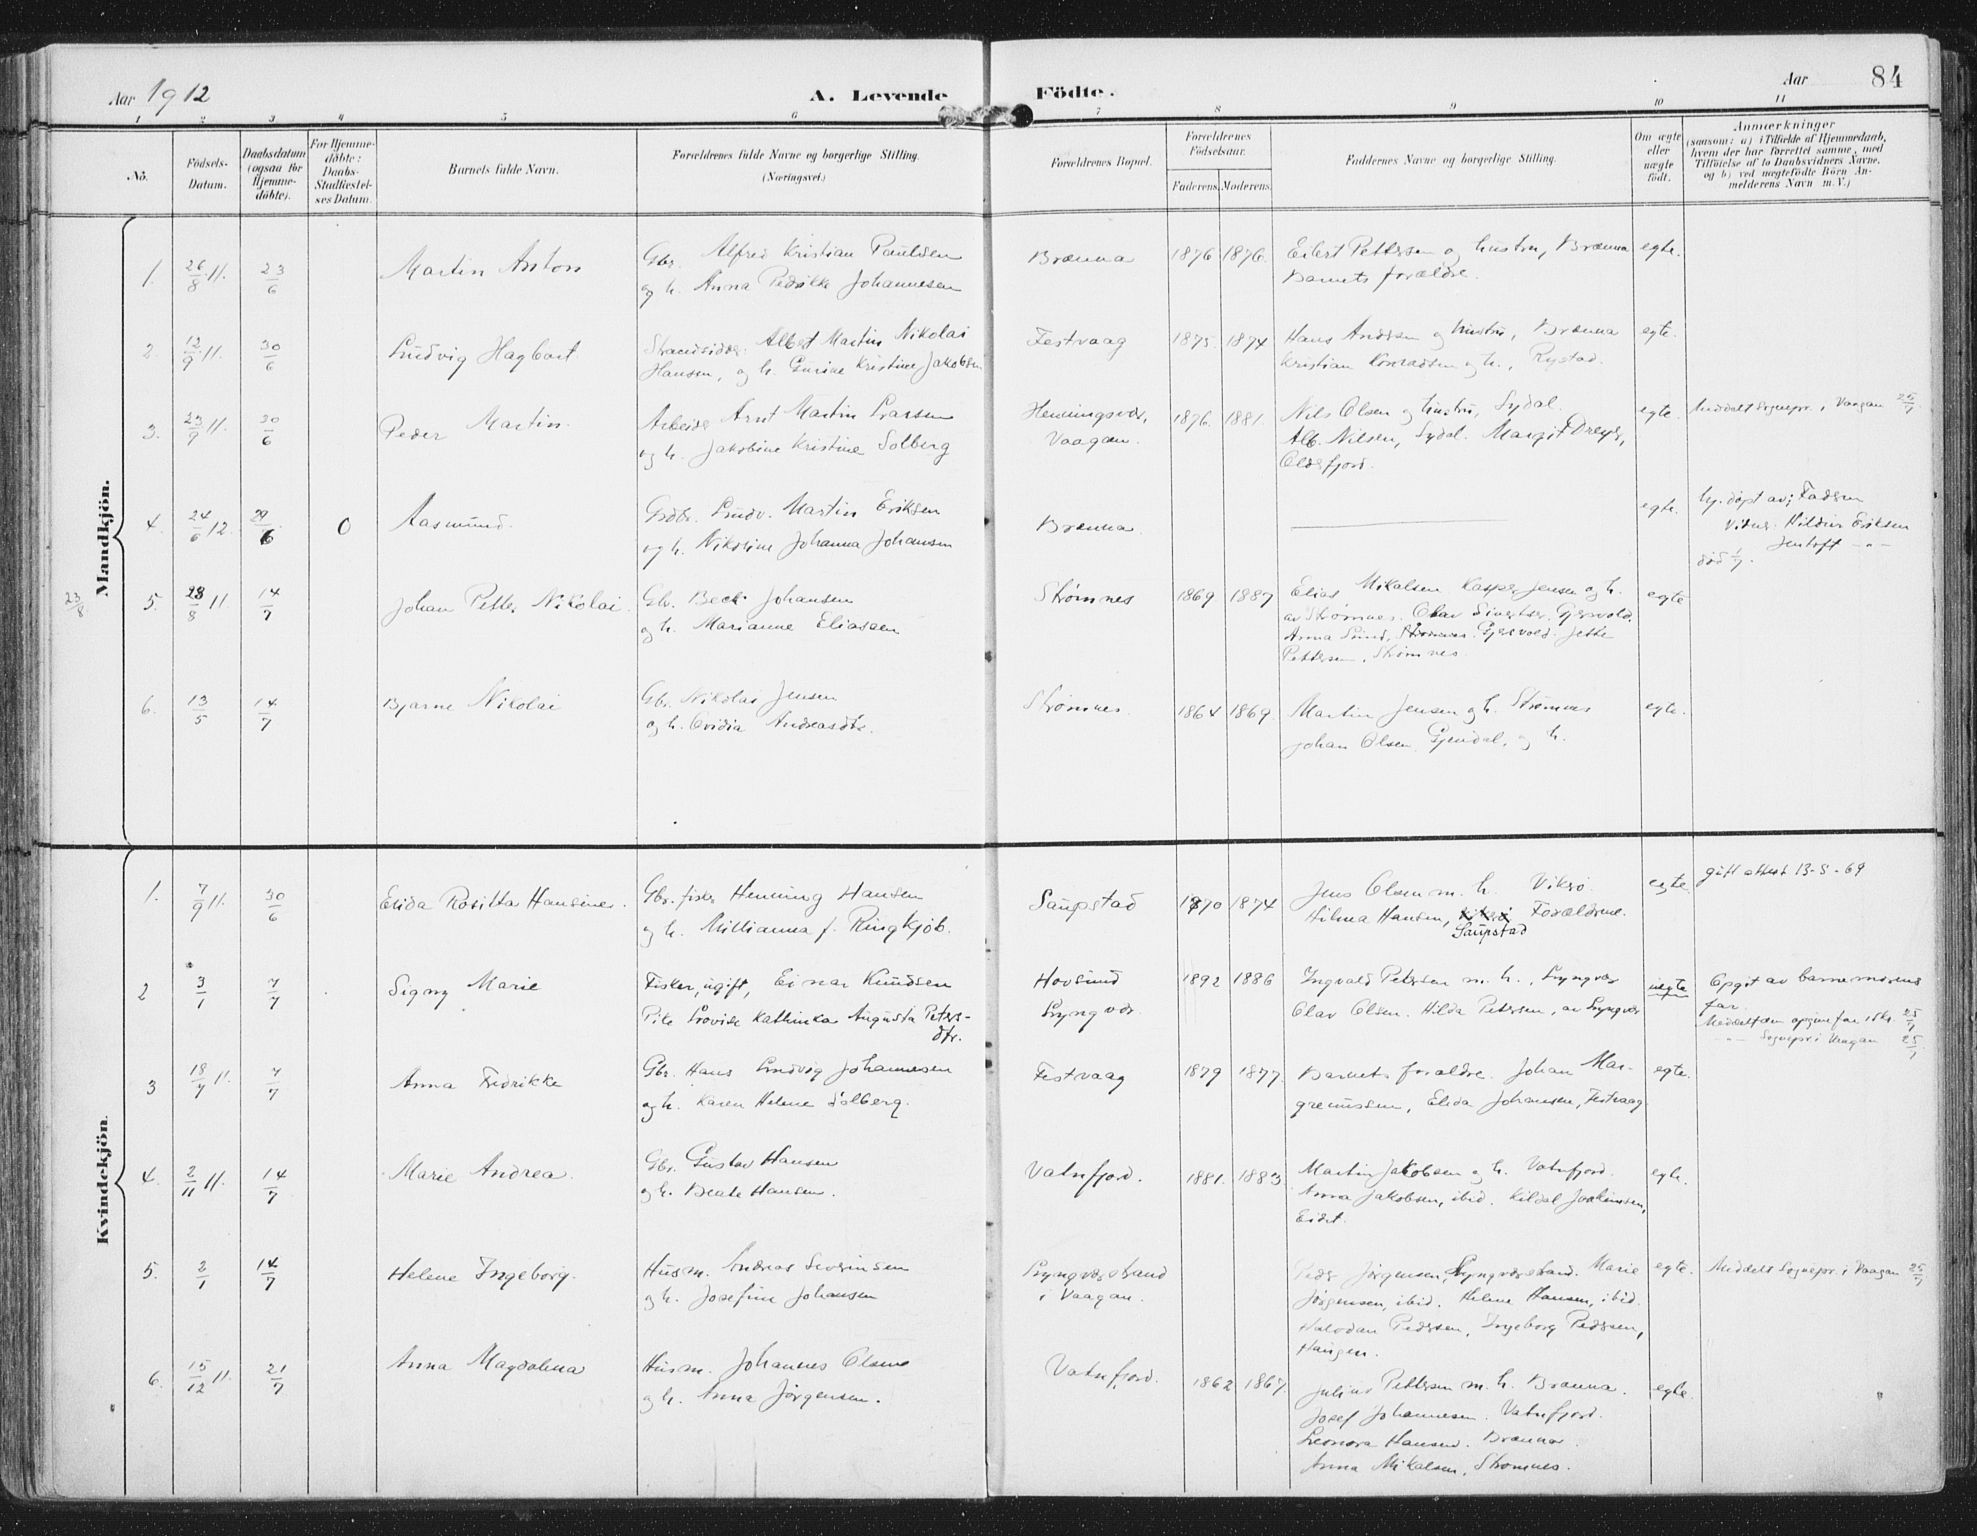 Aar 1912 A. Levende Födte. Aar 84
1 2 3 4 5 6 7 8 9 10 11
No.
Födsels-
Datum.
Daabsdatum
(ogsaa for
Hjemme-
döbte).
For Hjemme-
döbte:
Daabs-
Stadfæstel-
ses Datum.
Barnets fulde Navn.
Forældrenes fulde Navne og borgerlige Stilling.
(Næringsvei.)
Forældrenes Bopæl.
Forældrenes
Födselsaar.
Faderens. Moderens.
Faddernes Navne og borgerlige Stilling.
Om ægte
eller
uægte
födt.
Anmærkninger
(saasom: a) i Tilfælde af Hjemmedaab,
hvem der har forrettet samme, med
Tilföielse af to Daabsvidners Navne,
og b) ved uægtefödte Börn An-
melderens Navn m. V.)
Mandkjön.
1. 26/8 11. 23/6 Martin Anton Gbr. Alfred Kristian Paulsen Brænna 1876 1876. Eilert Pettersen og hustru, Brænna egte.
og h. Anna Pedrikke Johannesen Barnets forældre.
2. 12/9 11. 30/6 Ludvig Hagbart Strandsidder Albert Martin Nikolai Festvaag 1875. 1874 Hans Andersen og hustru, Brænna egte.
Hansen, og h. Gurine Kristine Jakobsen Kristian Konradsen og h., Rystad.
3. 23/9 11. 30/6 Peder Martin. Arbeider Arnt Martin Larsen Henningsvær, 1876. 1881. Nils Olsen og hustru, Sydal. egte. Meddelt Sognepr. i Vaagan 25/7
og h. Jakobine Kristine Solberg Vaagan. Alb. Nilsen, Sydal. Margit Dreyer,
Oldersfjord.
4. 24/6 12. 29/6 0 Aasmund. Grdbr. Ludv. Martin Eriksen Brænna egte. hj. døpt av; Faderen
og h. Nikoline Johanna Johansen Vidner: Hildur Eriksen
Jentoft -"-
død 1/7.
23/8 5. 28/8 11 14/7 Johan Petter Nikolai. Gbr. Beck Johansen Strømnes 1869 1887 Elias Mikalsen Kasper Jensen og h. egte
og h. Marianne Eliassen av Strømnes. Olav Sivertsen Gjersvold.
Anna Lund, Strømnes. Gjersvold. Jette
Pettersen, Strømnes.
6. 13/5 14/7 Bjarne Nikolai Gbr. Nikolai Jensen Strømnes. 1864 1869 Martin Jensen og h. Strømnes egte.
og h. Ovidia Andreasdtr. Johan Olsen, Gjerdal, og h.
Kvindekjön.
1. 7/9 11. 30/6 Elida Rositta Hansine. Gbr. fisker Henning Hansen Saupstad 1870 1874 Jens Olsen m. h. Vikrø. egte gift attest 13-5-69
og h. Millianna f. Ringkjøb. Hilma Hansen, Forældrene.
Saupstad
2 3/1 7/7 Signy Marie Fisker, ugift, Einar Knudsen Hovsund 1892 1886 Ingvald Petersen m. h., Lyngvær uegte Opgit av barnemorens
Pike Lovise Kathinka Augusta Peters- Lyngvær. Olav Olsen. Hilda Petersen, av Lyngvær far.
dtr. Meddelt den opgivne far 25/7
-"- Sognepr. i Vaagan 25/7
3 18/7 11. 7/7 Anna Fredrikke Gbr. Hans Ludvig Johannesen Festvaag 1879 1877. Barnets forældre. Johan Mar- egte.
og h. Karen Helene Solberg. grenussen, Elida Johansen, Festvaag.
4. 2/11 11. 14/7 Marie Andrea. Gbr. Gustav Hansen Vatnfjord. 1881. 1883 Martin Jakobsen og h. Vatnfjord. egte.
og h. Beate Hansen. Anna Jakobsen, ibid. Kildal Joakimsen,
Eidet.
5. 2/1 14/7 Helene Ingeborg. Husm. Andreas Severinsen Lyngværstrand Peder Jørgensen, Lyngværstrand. Marie egte. Meddelt Sognepr. i Vaagan 25/7
og h. Josefine Johansen i Vaagan. Jørgensen, ibid. Helene Hansen, ibid.
Halvdan Pedersen, Ingeborg Pedersen,
Haugen.
6. 15/12 11. 21/7 Anna Magdalena Husm. Johannes Olsen Vatnfjord. 1862 1867. Julius Pettersen m. h. Brænna. egte.
og h. Anna Jørgensen. Josef Johannesen. Vatnfjord.
Leonora Hansen. Brænna.
Anna Mikalsen, Strømnes.